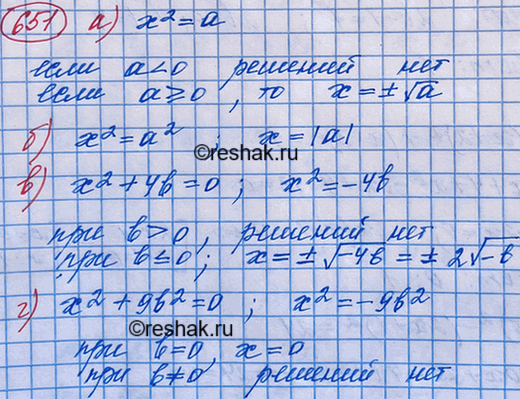 651 а) x² = a
если a < 0 решений нет
если a ≥ 0, то x = ± √a
б) x² = a² ; x = |a|
©reshak.ru
в) x² + 4b = 0 ; x² = -4b
при b > 0, решений нет
при b ≤ 0 ; x = ± √-4b = ± 2√-b
г) x² + 9b² = 0 ; x² = -9b²
©reshak.ru
при b = 0, x = 0
при b ≠ 0 решений нет